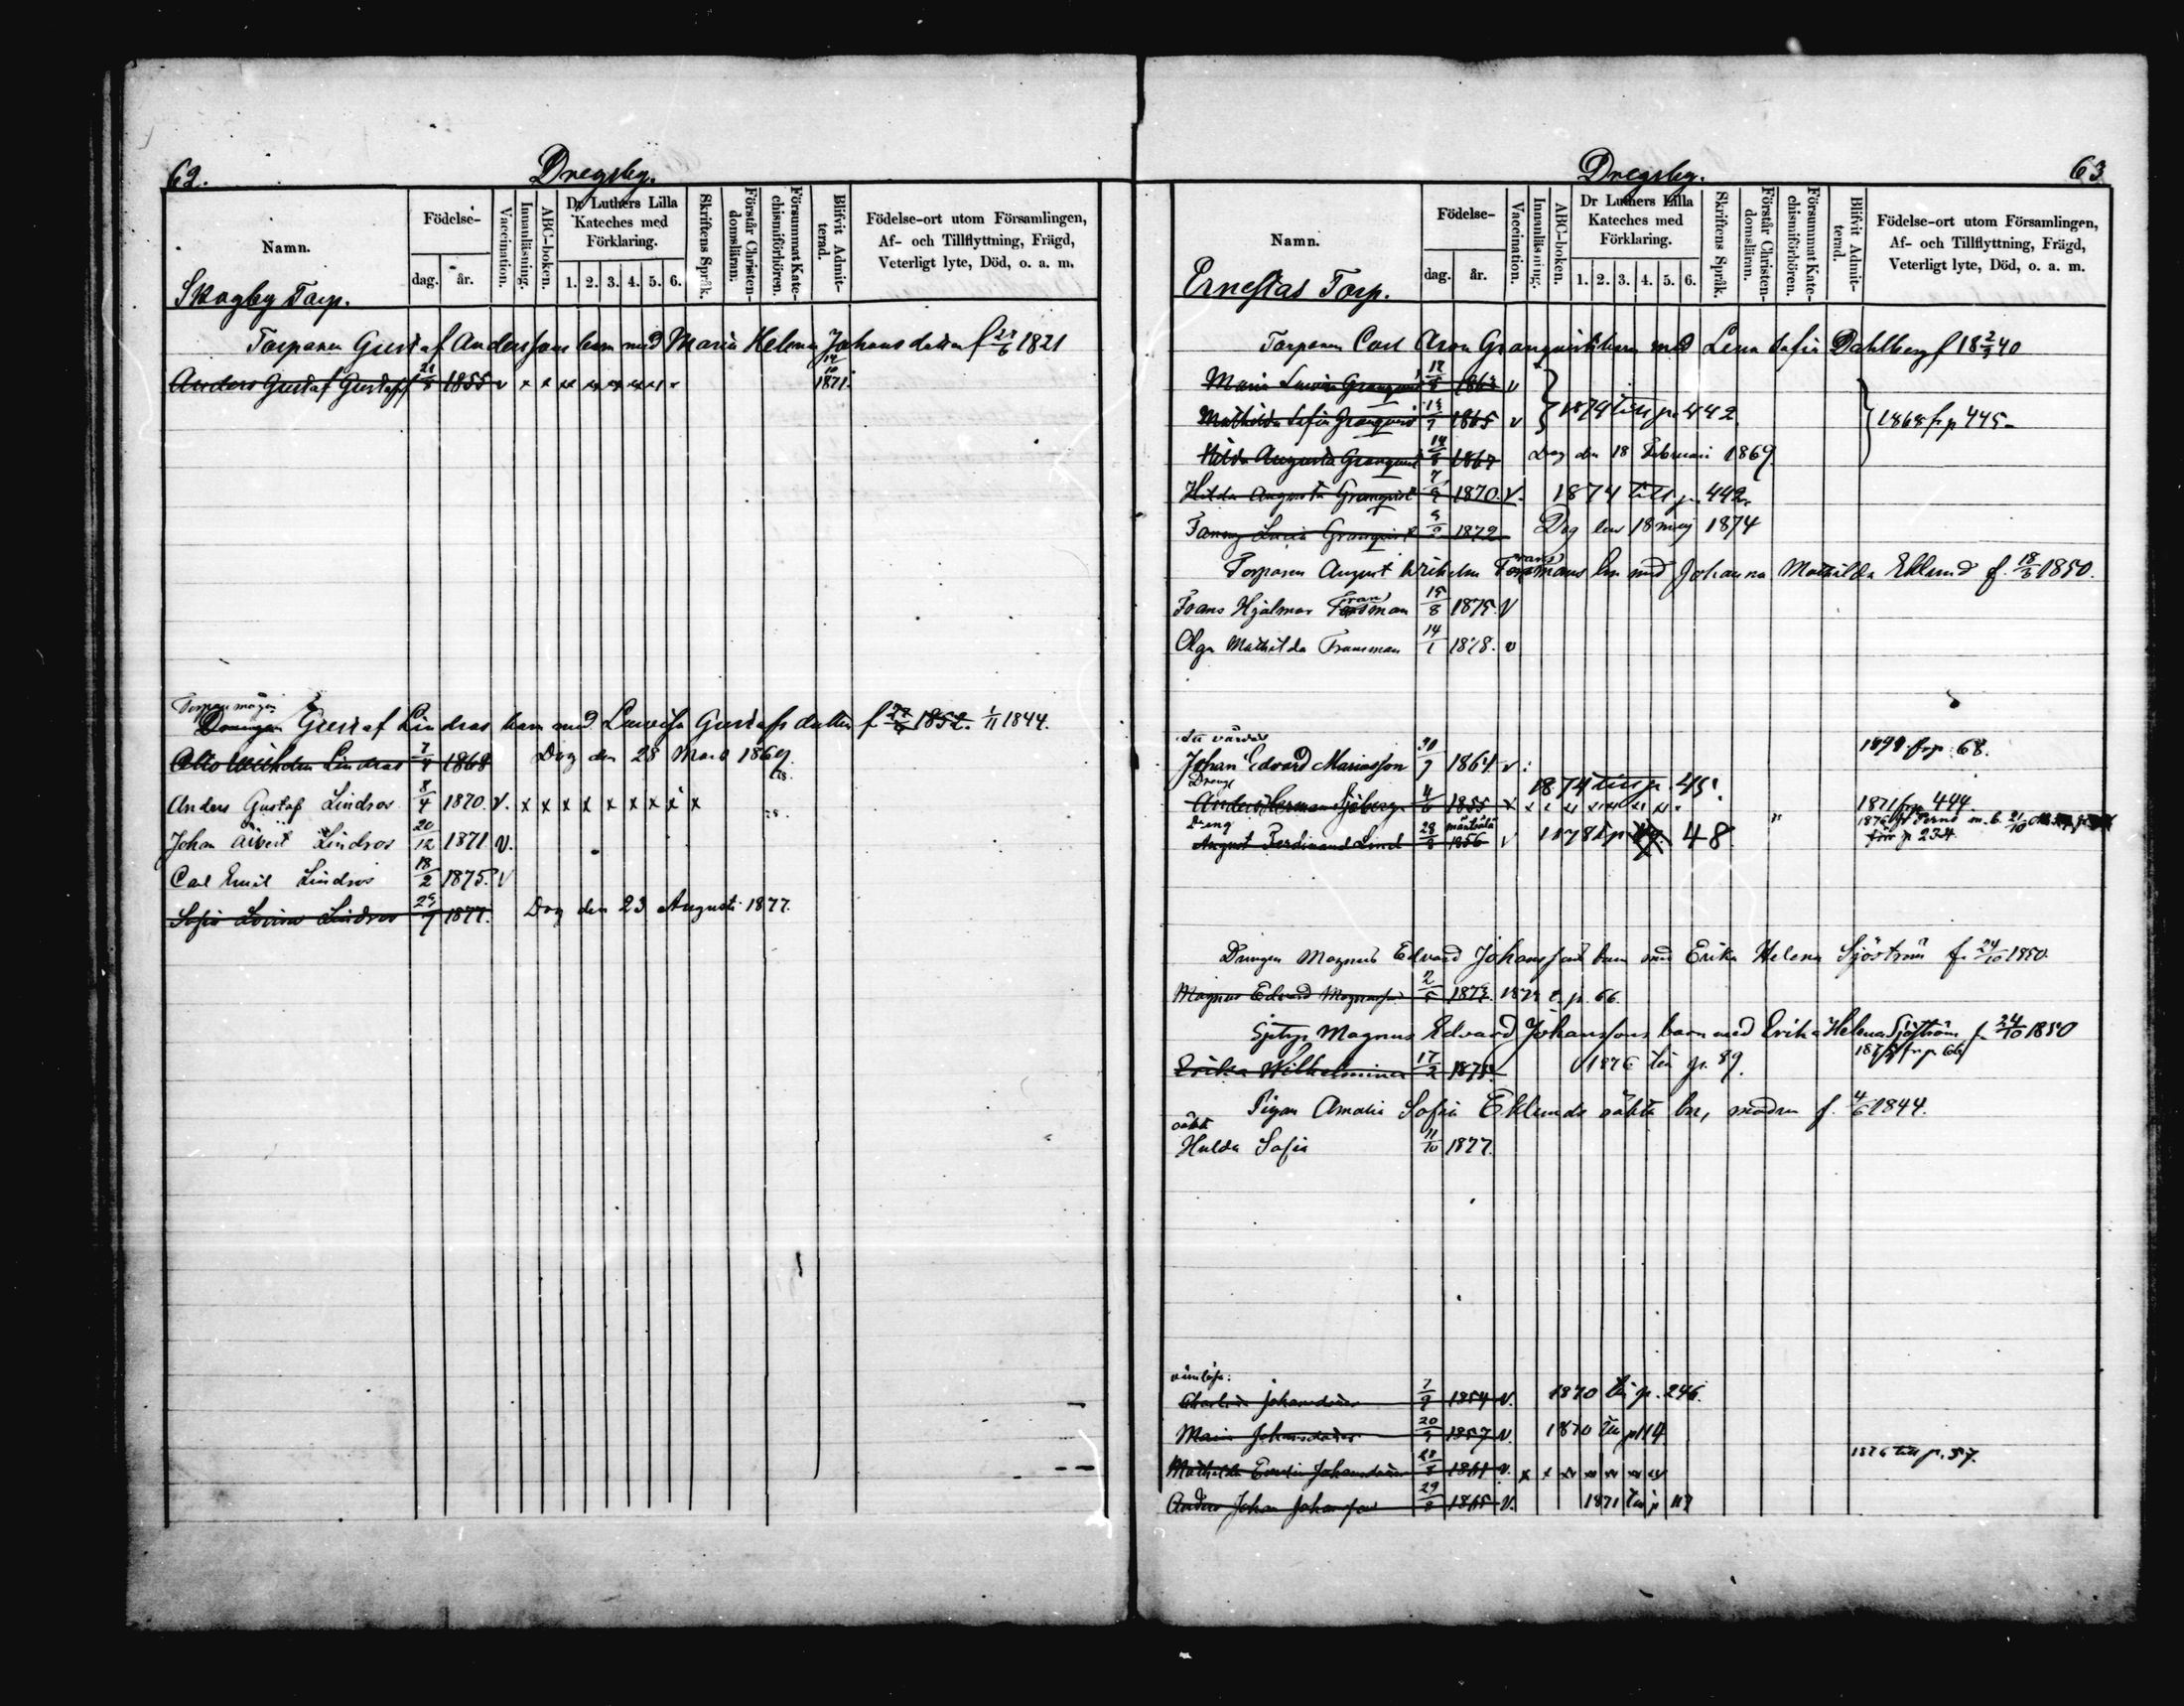 62.
Dregsby.
Namn.
Födelse-
dag. år.
Vaccination.
Innanläsning.
ABC-boken.
Dr Luthers Lilla
Kateches med
Förklaring.
1. 2. 3. 4. 5. 6.
Skriftens Språk.
Förstår Christen-
domsläran.
Försummat Kate-
chismiförhören.
Blifvit Admit-
terad.
Födelse-ort utom Församlingen,
Af- och Tillflyttning, Frägd,
Veterligt lyte, Död, o. a. m.
Skogby Torp.
Torparen Gustaf Anderssons barn med Maria Helena Johansdotter f 27/6 1821
Anders Gustaf Gustafss 21/8 1855 v x x xx xx xx xx 1871.
Torpare mågen
Drängen Gustaf Lindros barn med Lovisa Gustafsdotter f 1852. 1/11 1844.
Otto Wilhelm Lindros 7/4 1868 Dog den 28 Mars 1869.
Anders Gustaf Lindros 8/4 1870. v. x x x x x x x x x
Johan Albert Lindros 20/12 1871 v.
Carl Emil Lindros 18/2 1875. v
Sofia Lovisa Lindros 1877. Dog den 23 Augusti 1877.
Dregsby.
63
Namn.
Födelse-
dag. år.
Vaccination.
Innanläsning.
ABC-boken.
Dr Luthers Lilla
Kateches med
Förklaring.
1. 2. 3. 4. 5. 6.
Skriftens Språk.
Förstår Christen-
domsläran.
Försummat Kate-
chismiförhören.
Blifvit Admit-
terad.
Födelse-ort utom Församlingen,
Af- och Tillflyttning, Frägd,
Veterligt lyte, Död, o. a. m.
Ernestas Torp.
Torparen Carl Aron Granqvists barn med Lena Sofia Dahlberg f 18 2/3 40
Maria Lovisa Granqvist 12/8 1863 v
Mathilda Sofia Granqvist 1865 v 1874 till p. 442 1868 fr p 445
Hilda Augusta Granqvist 14/8 1867 Dog den 18 Februari 1869.
Hilda Augusta Granqvist 7/9 1870. v. 1874 till p. 442.
Fanny Lucia Granqvist 1872 Dog den 18 maj 1874
Torparen August Wilhelm Fransmans bn med Johanna Mathilda Eklund f. 18/3 1850.
Frans Hjalmar Fransman 15/8 1875. v
Olga Mathilda Fransman 14/1 1878. v
Johan Edvard Mariasson 30/7 1864 v. frp. 68.
Dräng
Anders Herman Sjöberg 4/6 1855 1874 till p. 45. 1871 frp 444.
Dräng
August Ferdinand Lind 28/8 1856 v 1878 t p 48 p 234.
Drängen Magnus Edvard Johanssons barn med Erika Helena Sjöström f. 24/10 1850.
Magnus Edvard Magnusson 2/5 1873. t. p. 66.
Magnus Edvard Johanssons barn med Erika Helena Sjöström f. 24/10 1850
Erika Wilhelmina 17/2 1875. 1876 till p. 89. fr p 66
Pigan Amalia Sofia Eklunds oäkta bn, modren f. 4/6 1844.
oäkta
Hulda Sofia 11/10 1877.
värnlösa:
Charlotta Johansdotter 7/9 1854 v. 1870 till p. 246.
Maria Johansdotter 20/9 1857 v. 1870 till p 114
Mathilda Emelia Johansdotter 28/8 1861 v. x x xx xx xx xx xx 1876 till p. 57.
Anders Johan Johansson 29/8 1865 v. 1871 till p 117